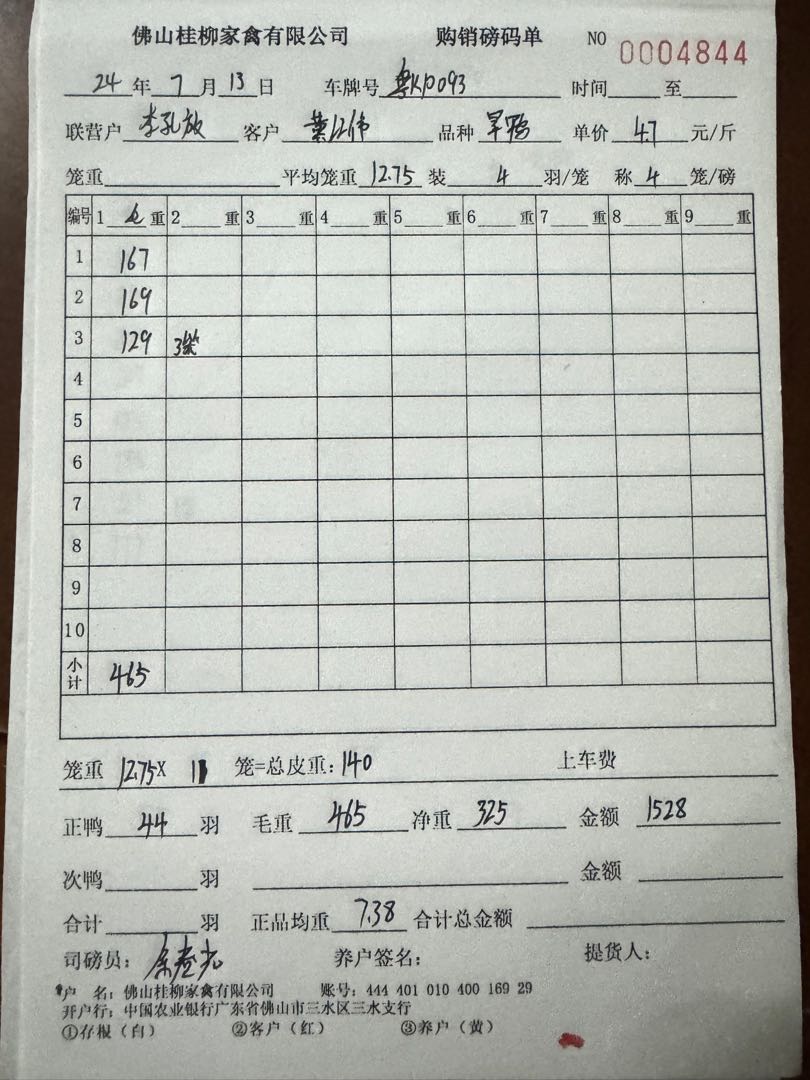 佛山桂柳家禽有限公司 购销磅码单 NO 0004844
24年7月13日 车牌号粤KP093 时间 至
联营户李孔放 客户黄江伟 品种旱鸭 单价4.7元/斤
笼重 平均笼重12.75 装4羽/笼 称4笼/磅
编号 1毛重 2 重 3 重 4 重 5 重 6 重 7 重 8 重 9 重
1 167
2 169
3 129 3笼
4
5
6
7
8
9
10
小计 465
笼重12.75X 11笼=总皮重:140 上车费
正鸭44羽 毛重465净重325 金额1528
次鸭 羽 金额
合计 羽 正品均重7.38合计总金额
司磅员: 养户签名: 提货人:
户 名:佛山桂柳家禽有限公司 账号:444 401 010 400 169 29
开户行:中国农业银行广东省佛山市三水区三水支行
①存根(白) ②客户(红) ③养户(黄)